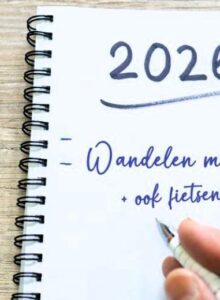 2026
- Wandelen m
- + ook fietsen